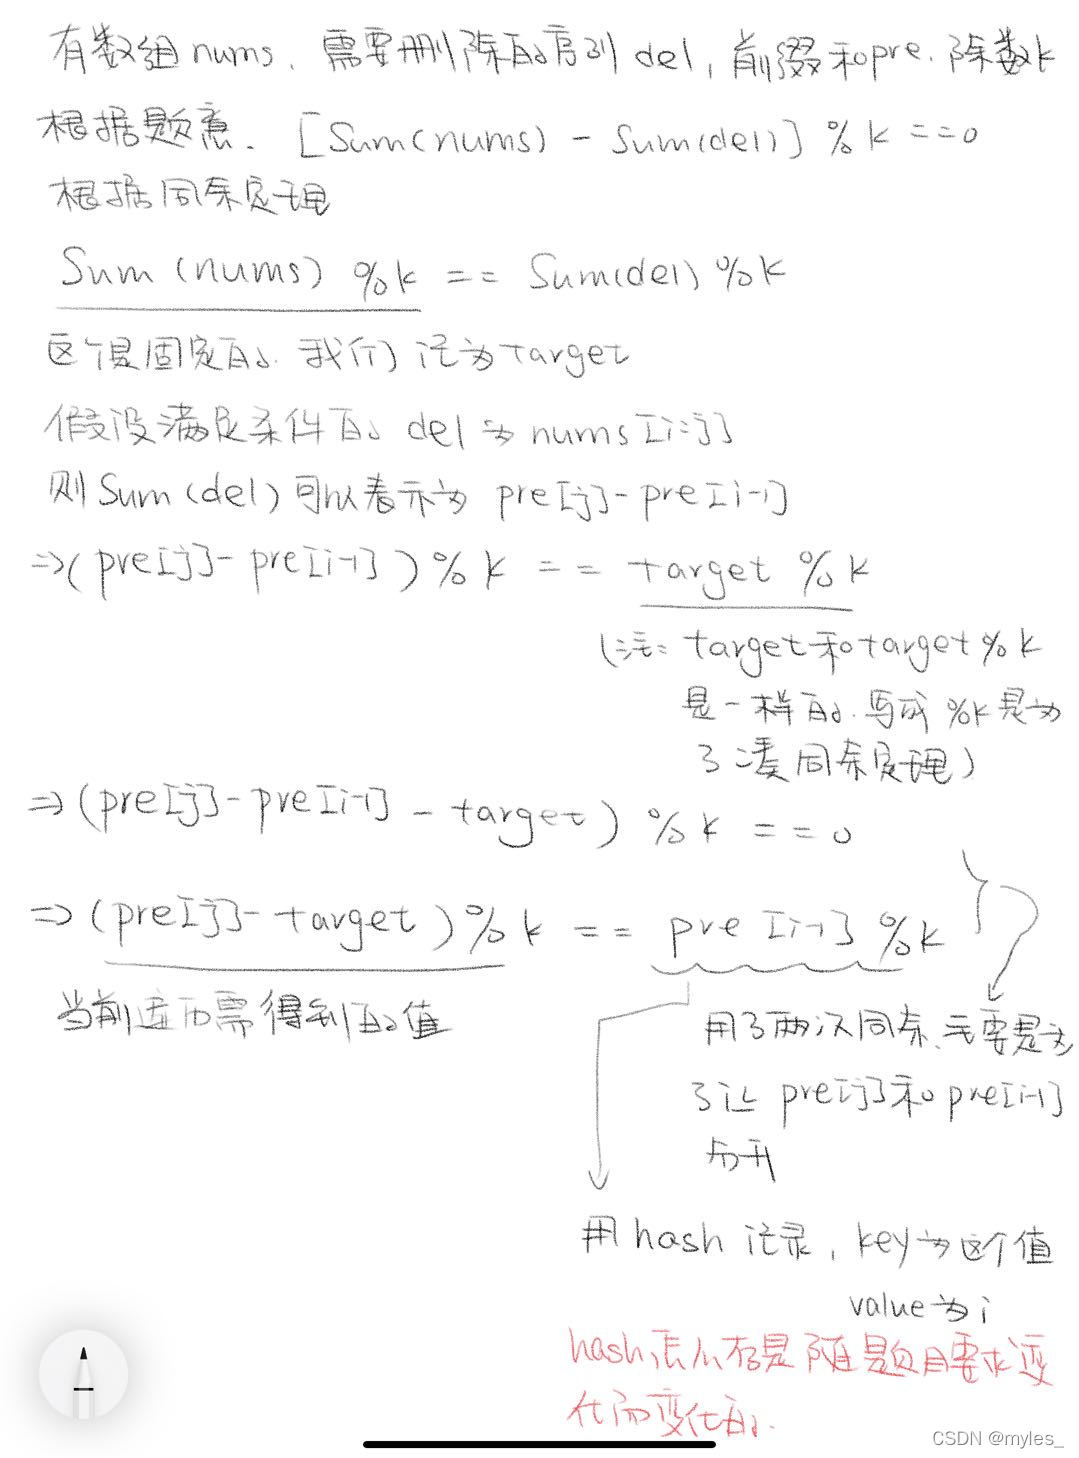 有数组nums. 需要删除的序列 del, 前缀和pre. 除数k
根据题意. [Sum(nums) - Sum(del)] % k ==0
根据同余定理
Sum (nums) % k == Sum(del) % k
这个是固定的. 我们记为target
假设满足条件的 del 为 nums[i:j]
则 Sum (del) 可以表示为 pre[j]-pre[i-1]
=>(pre[j]- pre[i-1]) % k == target % k
(注: target和target%k
是一样的. 写成 %k 是为
了凑同余定理)
=> (pre[j]-pre[i-1] - target) % k ==0
=> (pre[j]- target) % k == pre [i-1] %k
当前遍历需得到的值
用了两次同余.主要是为
了让 pre[j]和 pre[i-1]
分开
用 hash 记录, key为这个值
value为i
hash怎么存是随题目要求变
化而变化的.
CSDN @myles_